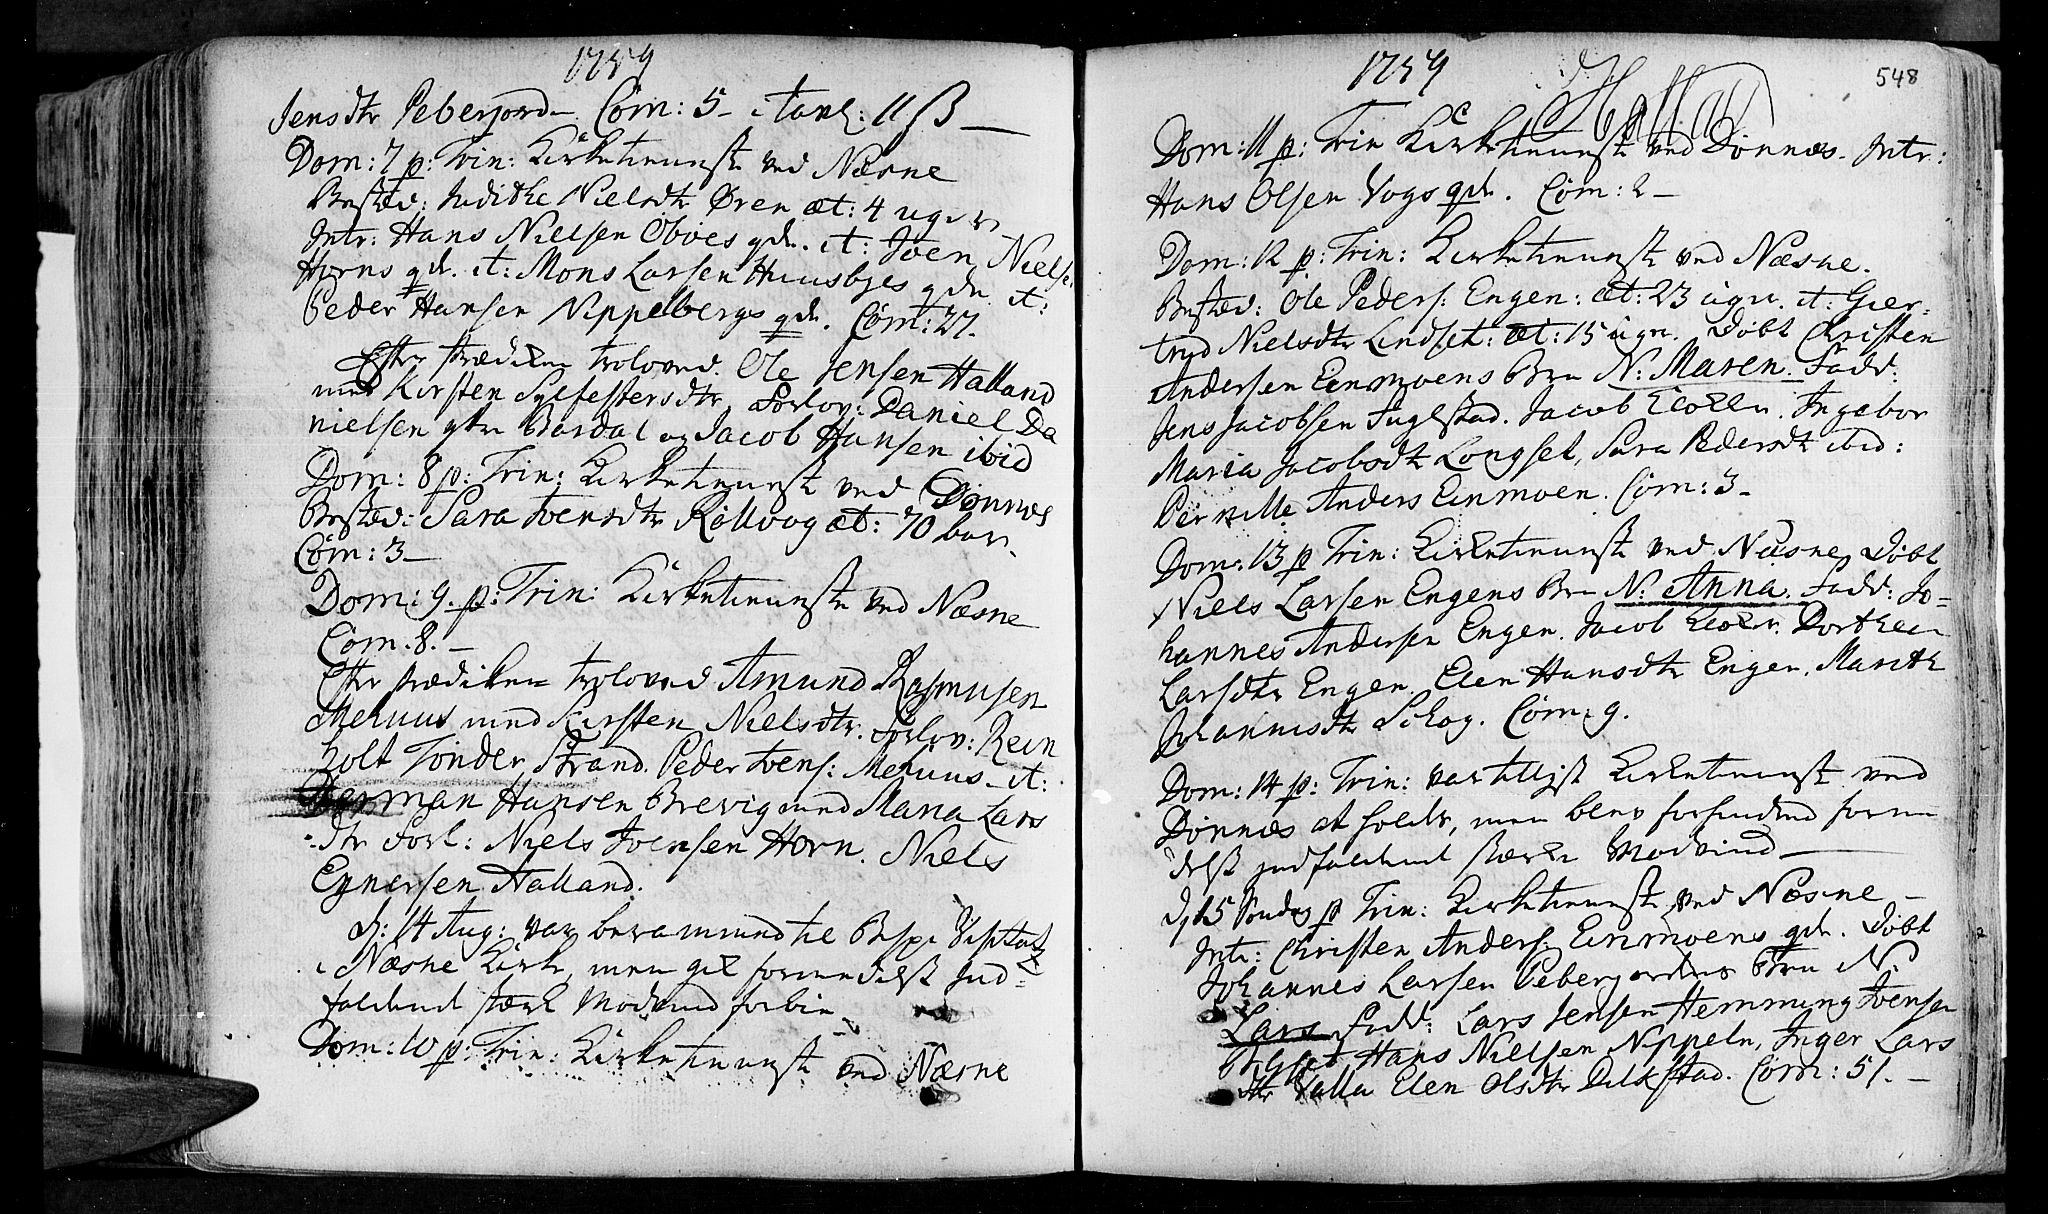 1759
Jensdtr Peberjord. Com: 5. Tavl: 11 ß
Dom: 7 p: Trin: Kirketieneste ved Næsne
Bested: Judithe Nielsdtr Øren æt: 4 uger
Intr: Hans Nielsen Oboes qde. it: Joen Niels:
Horns qde. it: Mons Larsen Huusbyes qde. it:
Peder Hansen Nippelbergs qde. Com: 27.
Efter Prædiken troloved. Ole Jensen Halland
med Kirsten Sylfestersdtr. Forlov: Daniel Da
nielsen Bardal og Jacob Hansen ibid
Dom: 8 p: Trin: Kirketieneste ved Dønnæs
Bested: Sara Ivensdtr Rölvog æt: 70
Com: 3
Dom: 9. p: Trin: Kirketieneste ved Næsne
Com. 8.
Efter Prædiken troloved Amund Rasmusen
Mehuus med Kirsten Nielsdtr. Forlov: Rein
holt Tønder Strand. Peder Ivens: Mehuus it:
Herman Hansen Brevig med Maria Lars
dtr Forl: Niels Ivensen Horn. Niels
Eynersen Halland.
D: 14 Aug: var berammed til Bispe Visitatz
i Næsne Kirke, men gik formedelst Ind=
faldend stærk Modvind forbie
Dom: 10 p: Trin: Kirketieneste ved Næsne
1759
548
Dom: 11 p: Trin Kirketieneste ved Dønnæs. Intr:
Hans Olsen Vogs qde. Com: 2
Dom: 12 p: Trin: Kirketieneste ved Næsne.
Bested: Ole Peders: Engen: æt: 23 uger. it: Gier-
trud Nielsdtr Lindset: æt: 15 uger. Døbt Christen
Andersen Einmoens Brn N: Maren. Fadd:
Jens Jacobsen Fuglstad. Jacob Ingebor
Maria Jacobsdtr Longset, Sara Pedersdtr ibid:
Pernille Anders Einmoen. Com: 3
Dom: 13 p Trin: Kirketieneste ved Næsne, Døbt
Niels Larsen Engens Brn N: Anna. Fadd: Jo=
hannes Andersen Engen. Jacob Dorthea
Larsdtr Engen. Elen Hansdtr Engen. Marith
Johannisdtr Schog. Com: 9.
Dom: 14 p: Trin: var tillyst Kirketieneste ved
Dønnæs at holde, men blev forhindred forme
delst indfaldend stærk Modvind
D: 15 Søndag p Trin: Kirketieneste ved Næsne
Intr: Christen Anders: Einmoens qde. Døbt
Johannes Larsen Peberjordens Brn N.
Lars Fadd: Lars Jensen Hemming Ivensen
Hans Nielsen Nippeln, Inger Lars
dtr Valla Elen Olsdtr Dilkstad. Com: 51.